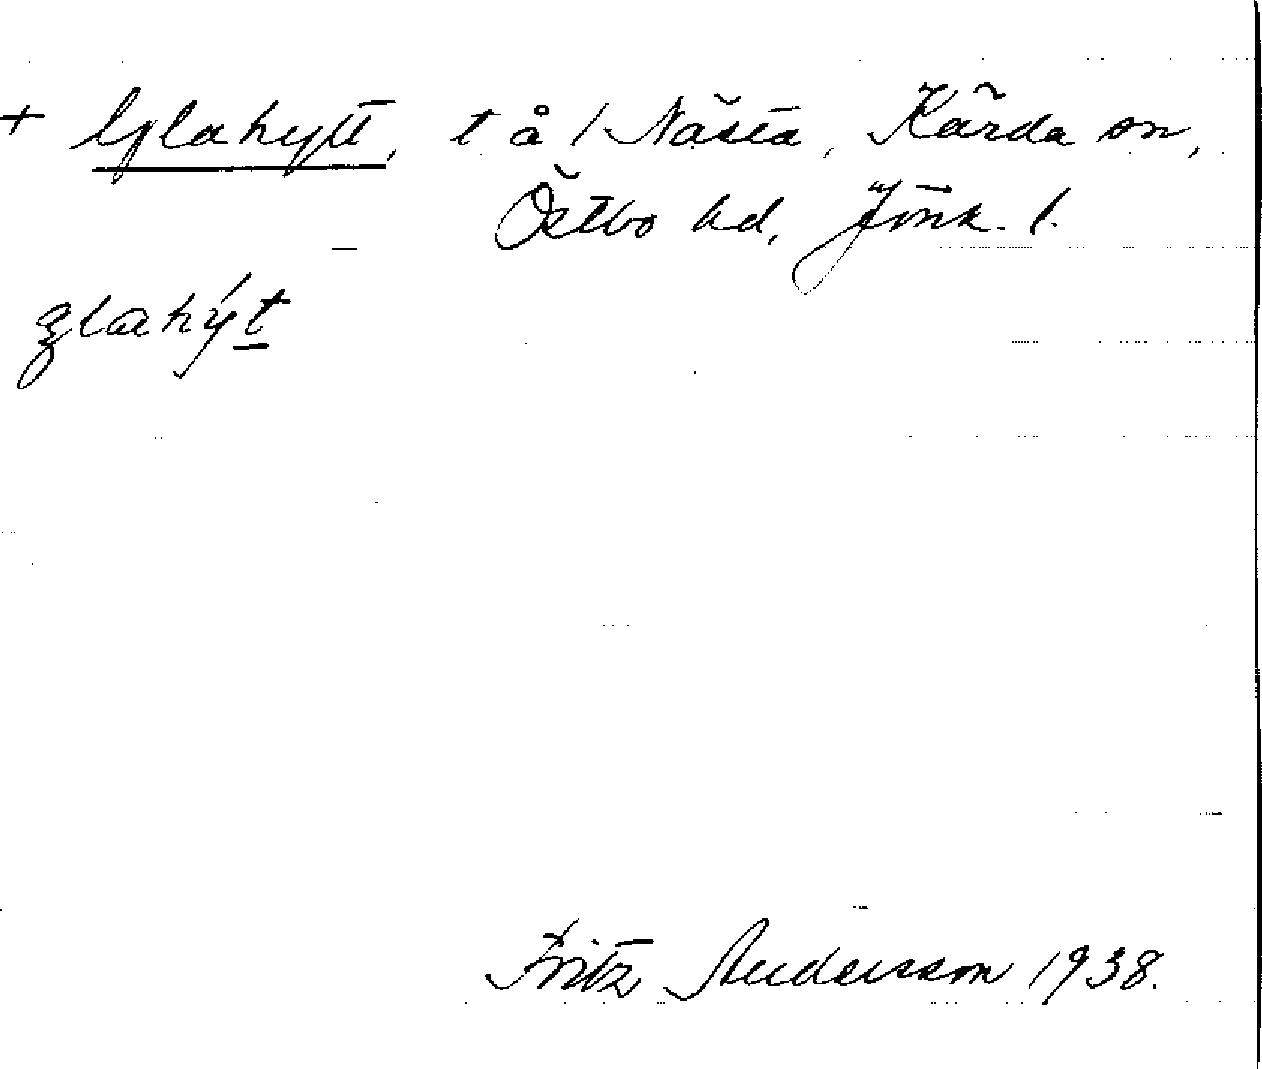 + Glahytt, t å / Nästa, Kärda sn,
Östbo hd, Jönk. l.
glahýt
Fritz Andersson 1938.